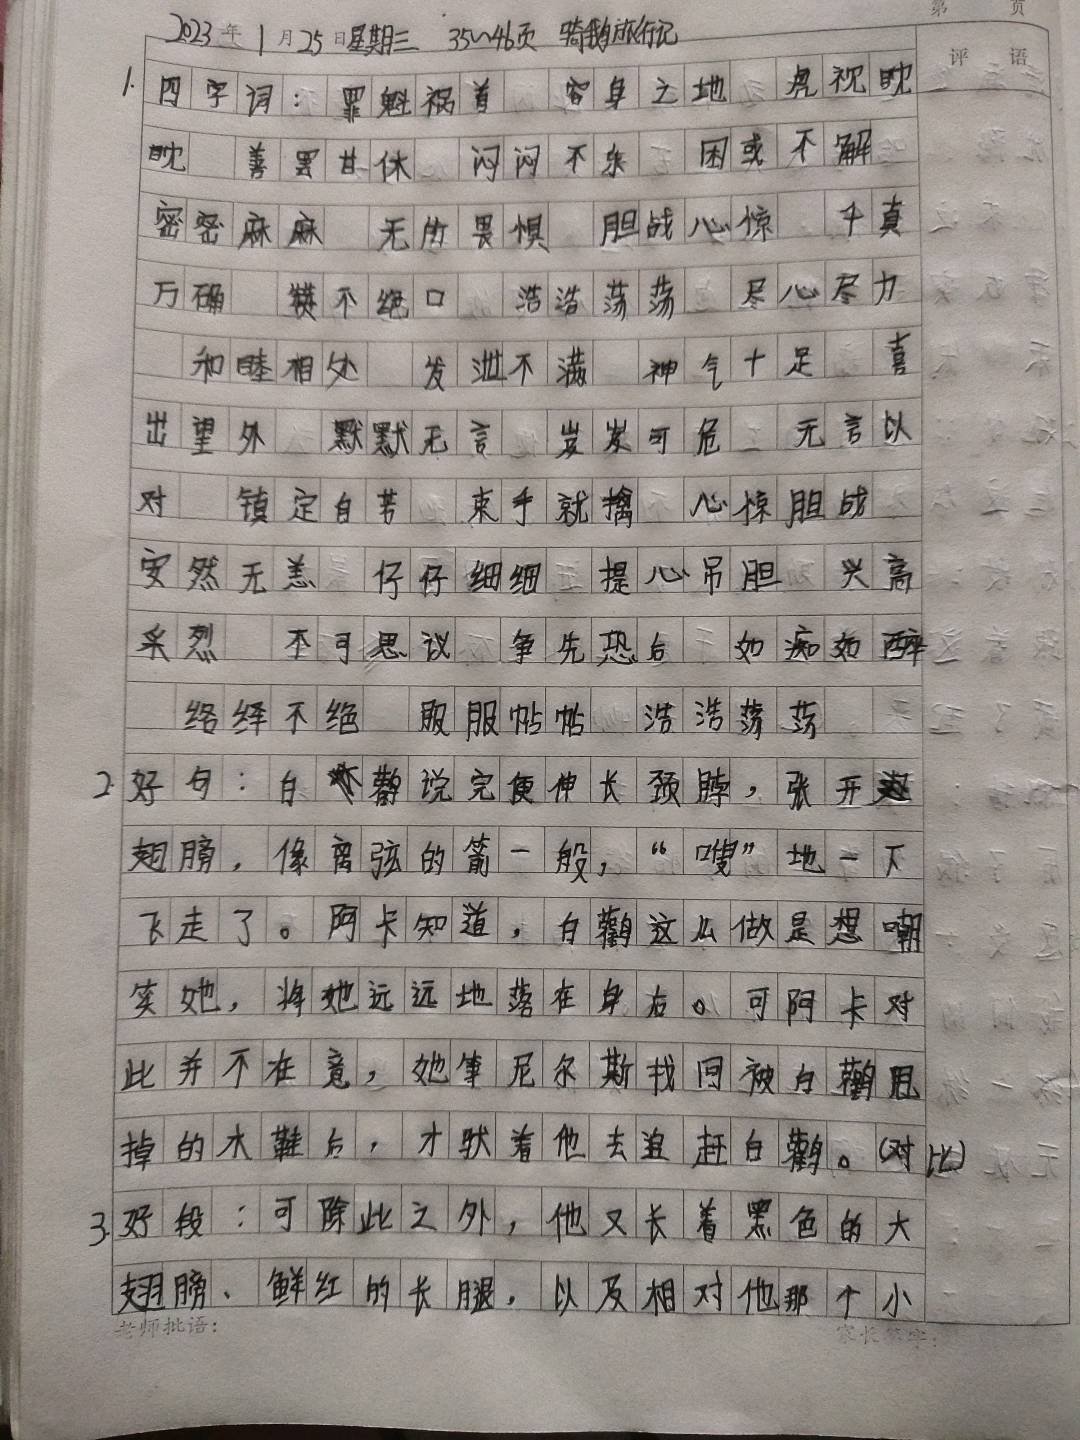 第 页
2023年1月25日星期三 35~46页 骑鹅旅行记
评 语
1. 四字词：罪魁祸首 容身之地 虎视眈
眈 善罢甘休 闷闷不乐 困或不解
密密麻麻 无所畏惧 胆战心惊 千真
万确 赞不绝口 浩浩荡荡 尽心尽力
和睦相处 发泄不满 神气十足 喜
出望外 默默无言 岌岌可危 无言以
对 镇定自若 束手就擒 心惊胆战
安然无恙 仔仔细细 提心吊胆 兴高
采烈 不可思议 争先恐后 如痴如醉
络绎不绝 服服帖帖 浩浩荡荡
2. 好句：白鹳说完便伸长颈脖，张开
翅膀，像离弦的箭一般，“嗖”地一下
飞走了。阿卡知道，白鹳这么做是想嘲
笑她，将她远远地落在身后。可阿卡对
此并不在意，她等尼尔斯找回被白鹳甩
掉的木鞋后，才驮着他去追赶白鹳。(对比)
3. 好段：可除此之外，他又长着黑色的大
翅膀、鲜红的长腿，以及相对他那个小
老师批语： 家长签字：